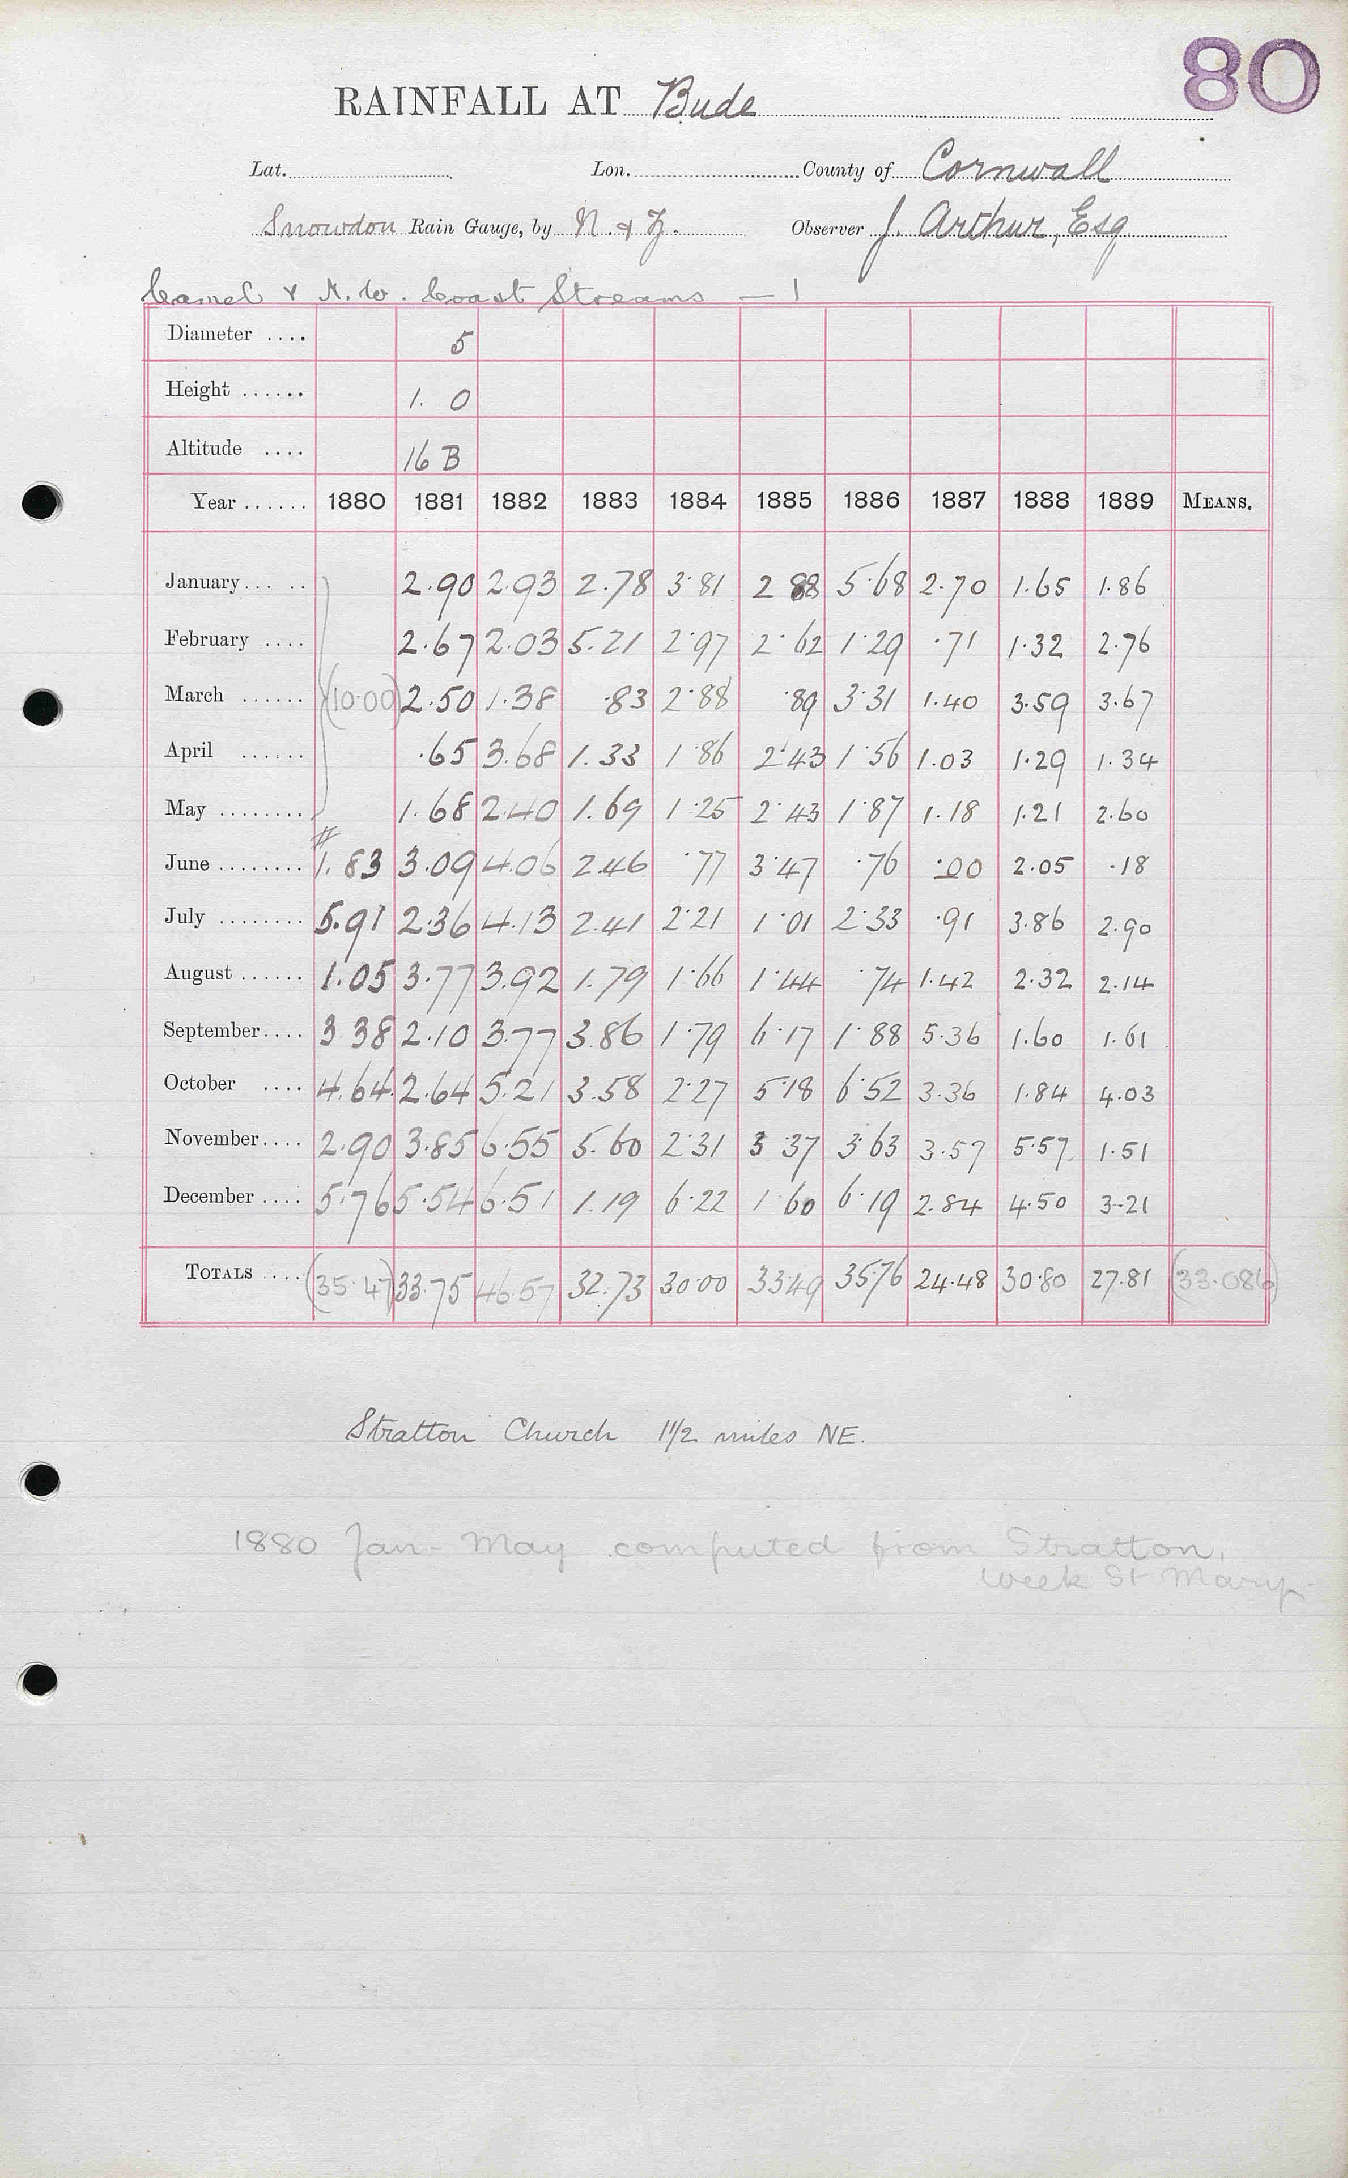 80
RAINFALL AT Bude
Lat. Lon. County of Cornwall
Snowdon Rain Gauge, by N. & Z. Observer J. Arthur, Esq
Camel & N.W. Coast Streams — 1
Diameter .... 5
Height ...... 1. 0
Altitude .... 16 B
Year ...... 1880 1881 1882 1883 1884 1885 1886 1887 1888 1889 MEANS.
January ... .. 2.90 2.93 2.78 3.81 2 88 5.68 2.70 1.65 1.86
February .... 2.67 2.03 5.21 2.97 2.62 1.29 .71 1.32 2.76
March ...... (10.00) 2.50 1.38 .83 2.88 .89 3.31 1.40 3.59 3.67
April ...... .65 3.68 1.33 1.86 2.43 1.56 1.03 1.29 1.34
May ........ 1.68 2.40 1.69 1.25 2.43 1.87 1.18 1.21 2.60
June ........ 1.83 3.09 4.06 2.46 .77 3.47 .76 .00 2.05 .18
July ........ 5.91 2.36 4.13 2.41 2.21 1.01 2.33 .91 3.86 2.90
August ...... 1.05 3.77 3.92 1.79 1.66 1.44 .74 1.42 2.32 2.14
September.... 3 38 2.10 3.77 3.86 1.79 6.17 1.88 5.36 1.60 1.61
October .... 4.64 2.64 5.21 3.58 2.27 5.18 6.52 3.36 1.84 4.03
November.... 2.90 3.85 6.55 5.60 2.31 3 37 3.63 3.57 5.57 1.51
December .... 5.76 5.54 6.51 1.19 6.22 1 60 6.19 2.84 4.50 3-21
TOTALS .... (35.47) 33.75 46.57 32.73 30.00 33.49 35.76 24.48 30.80 27.81 (33.086)
Stratton Church 1 1/2 miles NE.
1880 Jan - May computed from Stratton,
Week St Mary